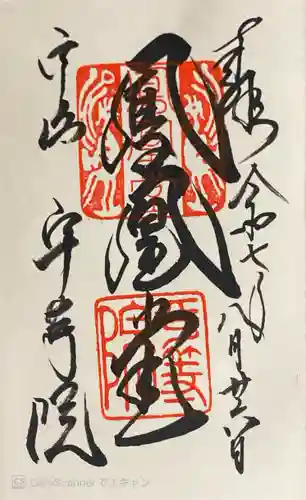 奉拝
令和七年八月廿六日
鳳凰堂
宇治
平等院
平等院印
CS CamScanner でスキャン